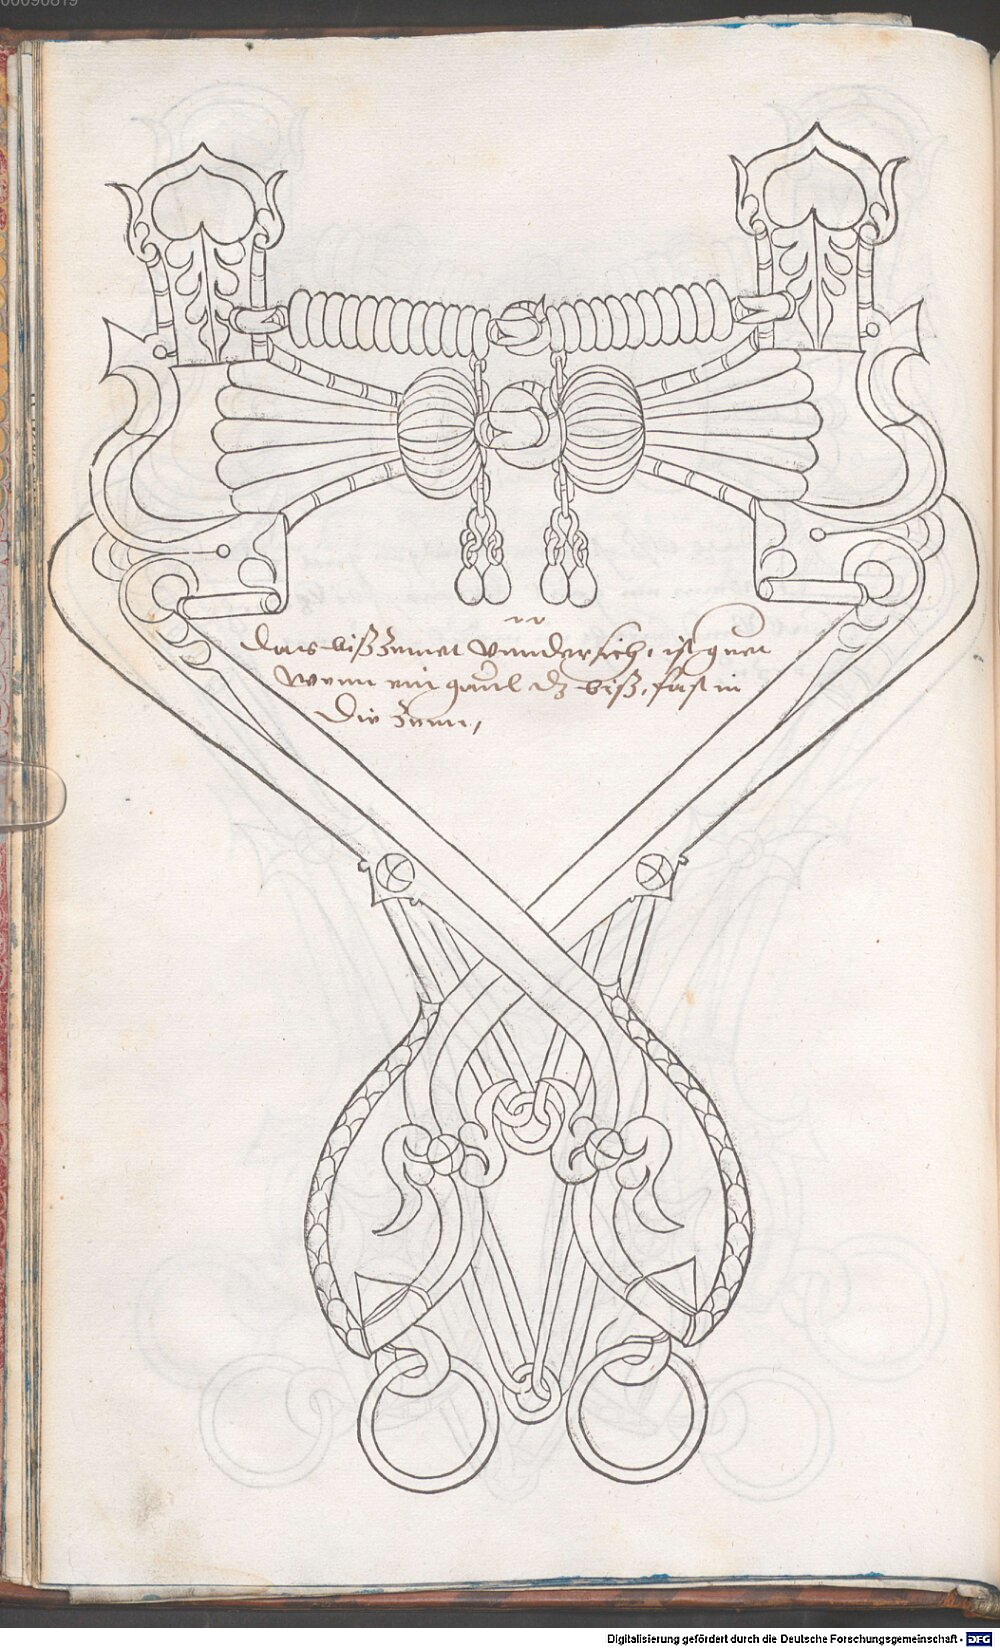 00096819
das biß zemet vnndersich, ist guet
wenn ein gaul dz biß, fast in
die zenn,
Digitalisierung gefördert durch die Deutsche Forschungsgemeinschaft - DFG